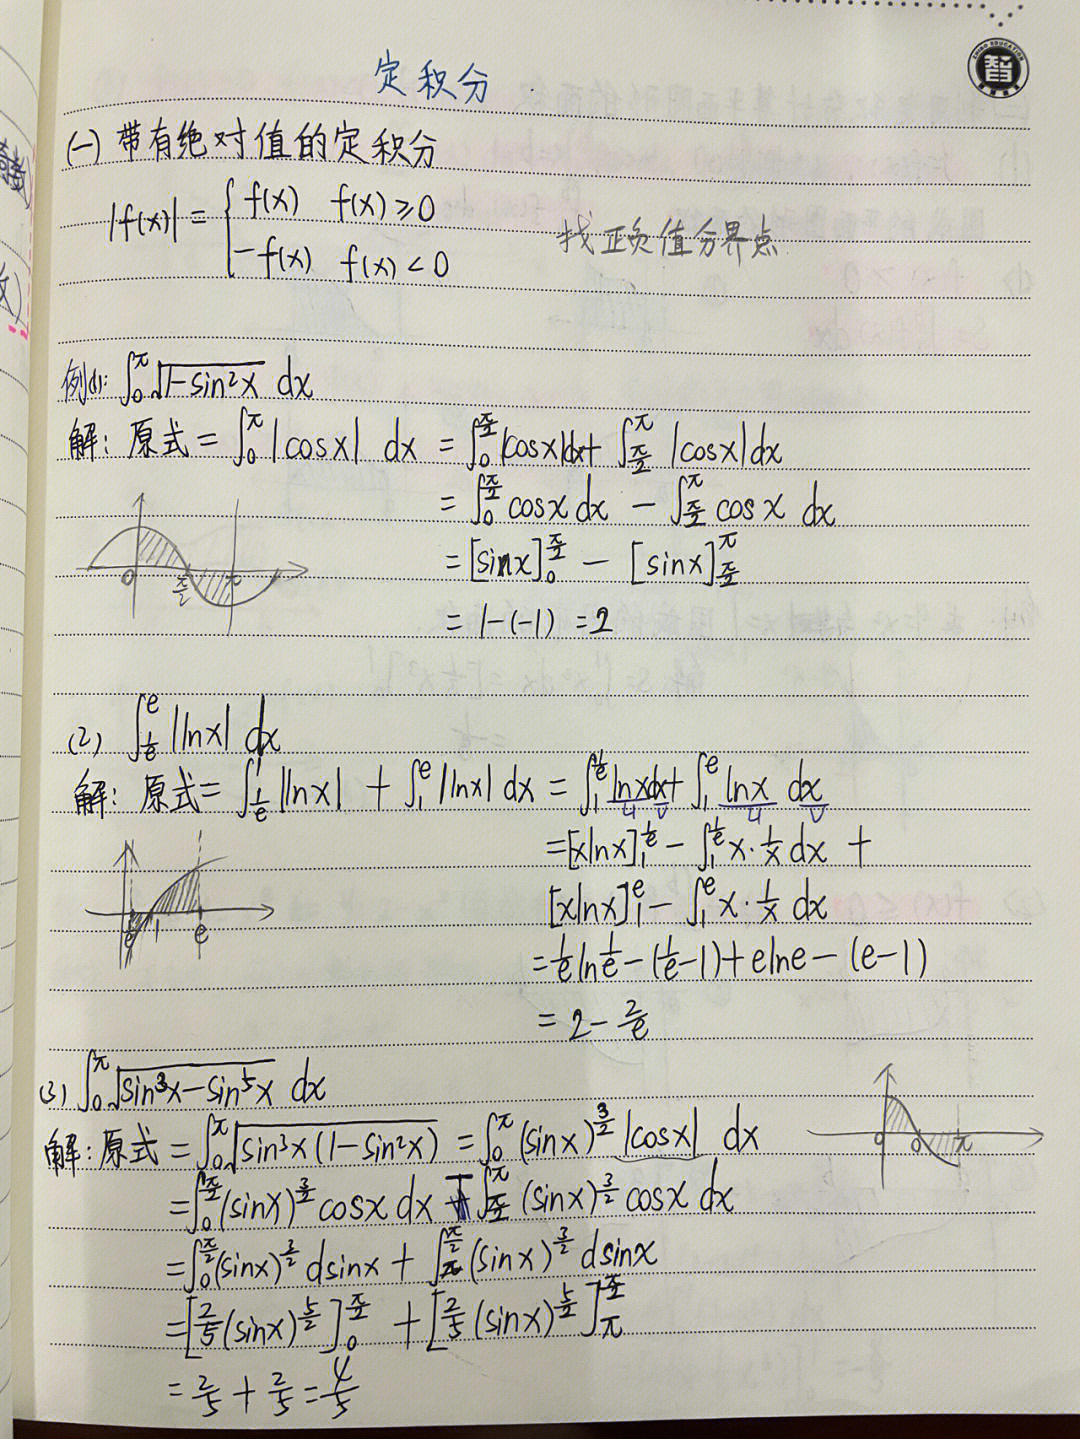 定积分
(一) 带有绝对值的定积分
|f(x)| = { f(x)  f(x) ≥ 0
-f(x)  f(x) < 0
找正负值分界点
例(1): ∫₀^π √(1-sin²x) dx
解: 原式 = ∫₀^π |cosx| dx = ∫₀^{π/2} |cosx|dx + ∫_{π/2}^π |cosx|dx
= ∫₀^{π/2} cosx dx - ∫_{π/2}^π cosx dx
= [sinx]₀^{π/2} - [sinx]_{π/2}^π
= 1-(-1) = 2
0 π/2 π
(2) ∫_{1/e}^e |lnx| dx
解: 原式 = ∫_{1/e}^1 |lnx| + ∫₁^e |lnx| dx = ∫₁^{1/e} lnx dx + ∫₁^e lnx dx
u v u v
= [xlnx]₁^{1/e} - ∫₁^{1/e} x·1/x dx +
[xlnx]₁^e - ∫₁^e x·1/x dx
= 1/e ln 1/e - (1/e - 1) + elne - (e-1)
= 2 - 2/e
1/e 1 e
(3) ∫₀^π √(sin³x-sin⁵x) dx
解: 原式 = ∫₀^π √(sin³x(1-sin²x)) = ∫₀^π (sinx)^{3/2} |cosx| dx
= ∫₀^{π/2} (sinx)^{3/2} cosx dx - ∫_{π/2}^π (sinx)^{3/2} cosx dx
= ∫₀^{π/2} (sinx)^{3/2} dsinx + ∫_π^{π/2} (sinx)^{3/2} dsinx
= [2/5 (sinx)^{5/2}]₀^{π/2} + [2/5 (sinx)^{5/2}]_π^{π/2}
= 2/5 + 2/5 = 4/5
0 π